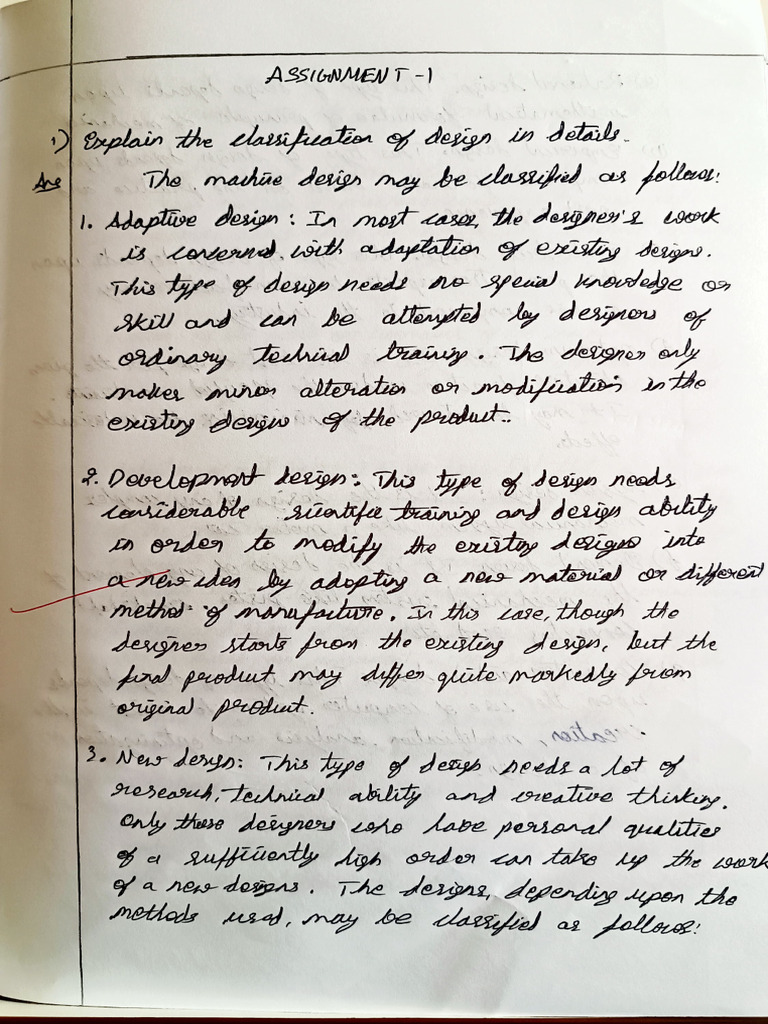 ASSIGNMENT-1
1) Explain the classification of design in details.
Ans The machine design may be classified as follows:
1. Adaptive design: In most cases, the designer's work
is concerned with adaptation of existing designs.
This type of design needs no special knowledge or
skill and can be attempted by designers of
ordinary technical training. The designer only
makes minor alteration or modification in the
existing designs of the product..
2. Development design: This type of design needs
considerable scientific training and design ability
in order to modify the existing designs into
a new idea by adopting a new material or different
method of manufacture. In this case, though the
designer starts from the existing design, but the
final product may differ quite markedly from
original product.
3. New design: This type of design needs a lot of
research, technical ability and creative thinking.
Only those designers who have personal qualities
of a sufficiently high order can take up the work
of a new designs. The designs, depending upon the
methods used, may be classified as follows: